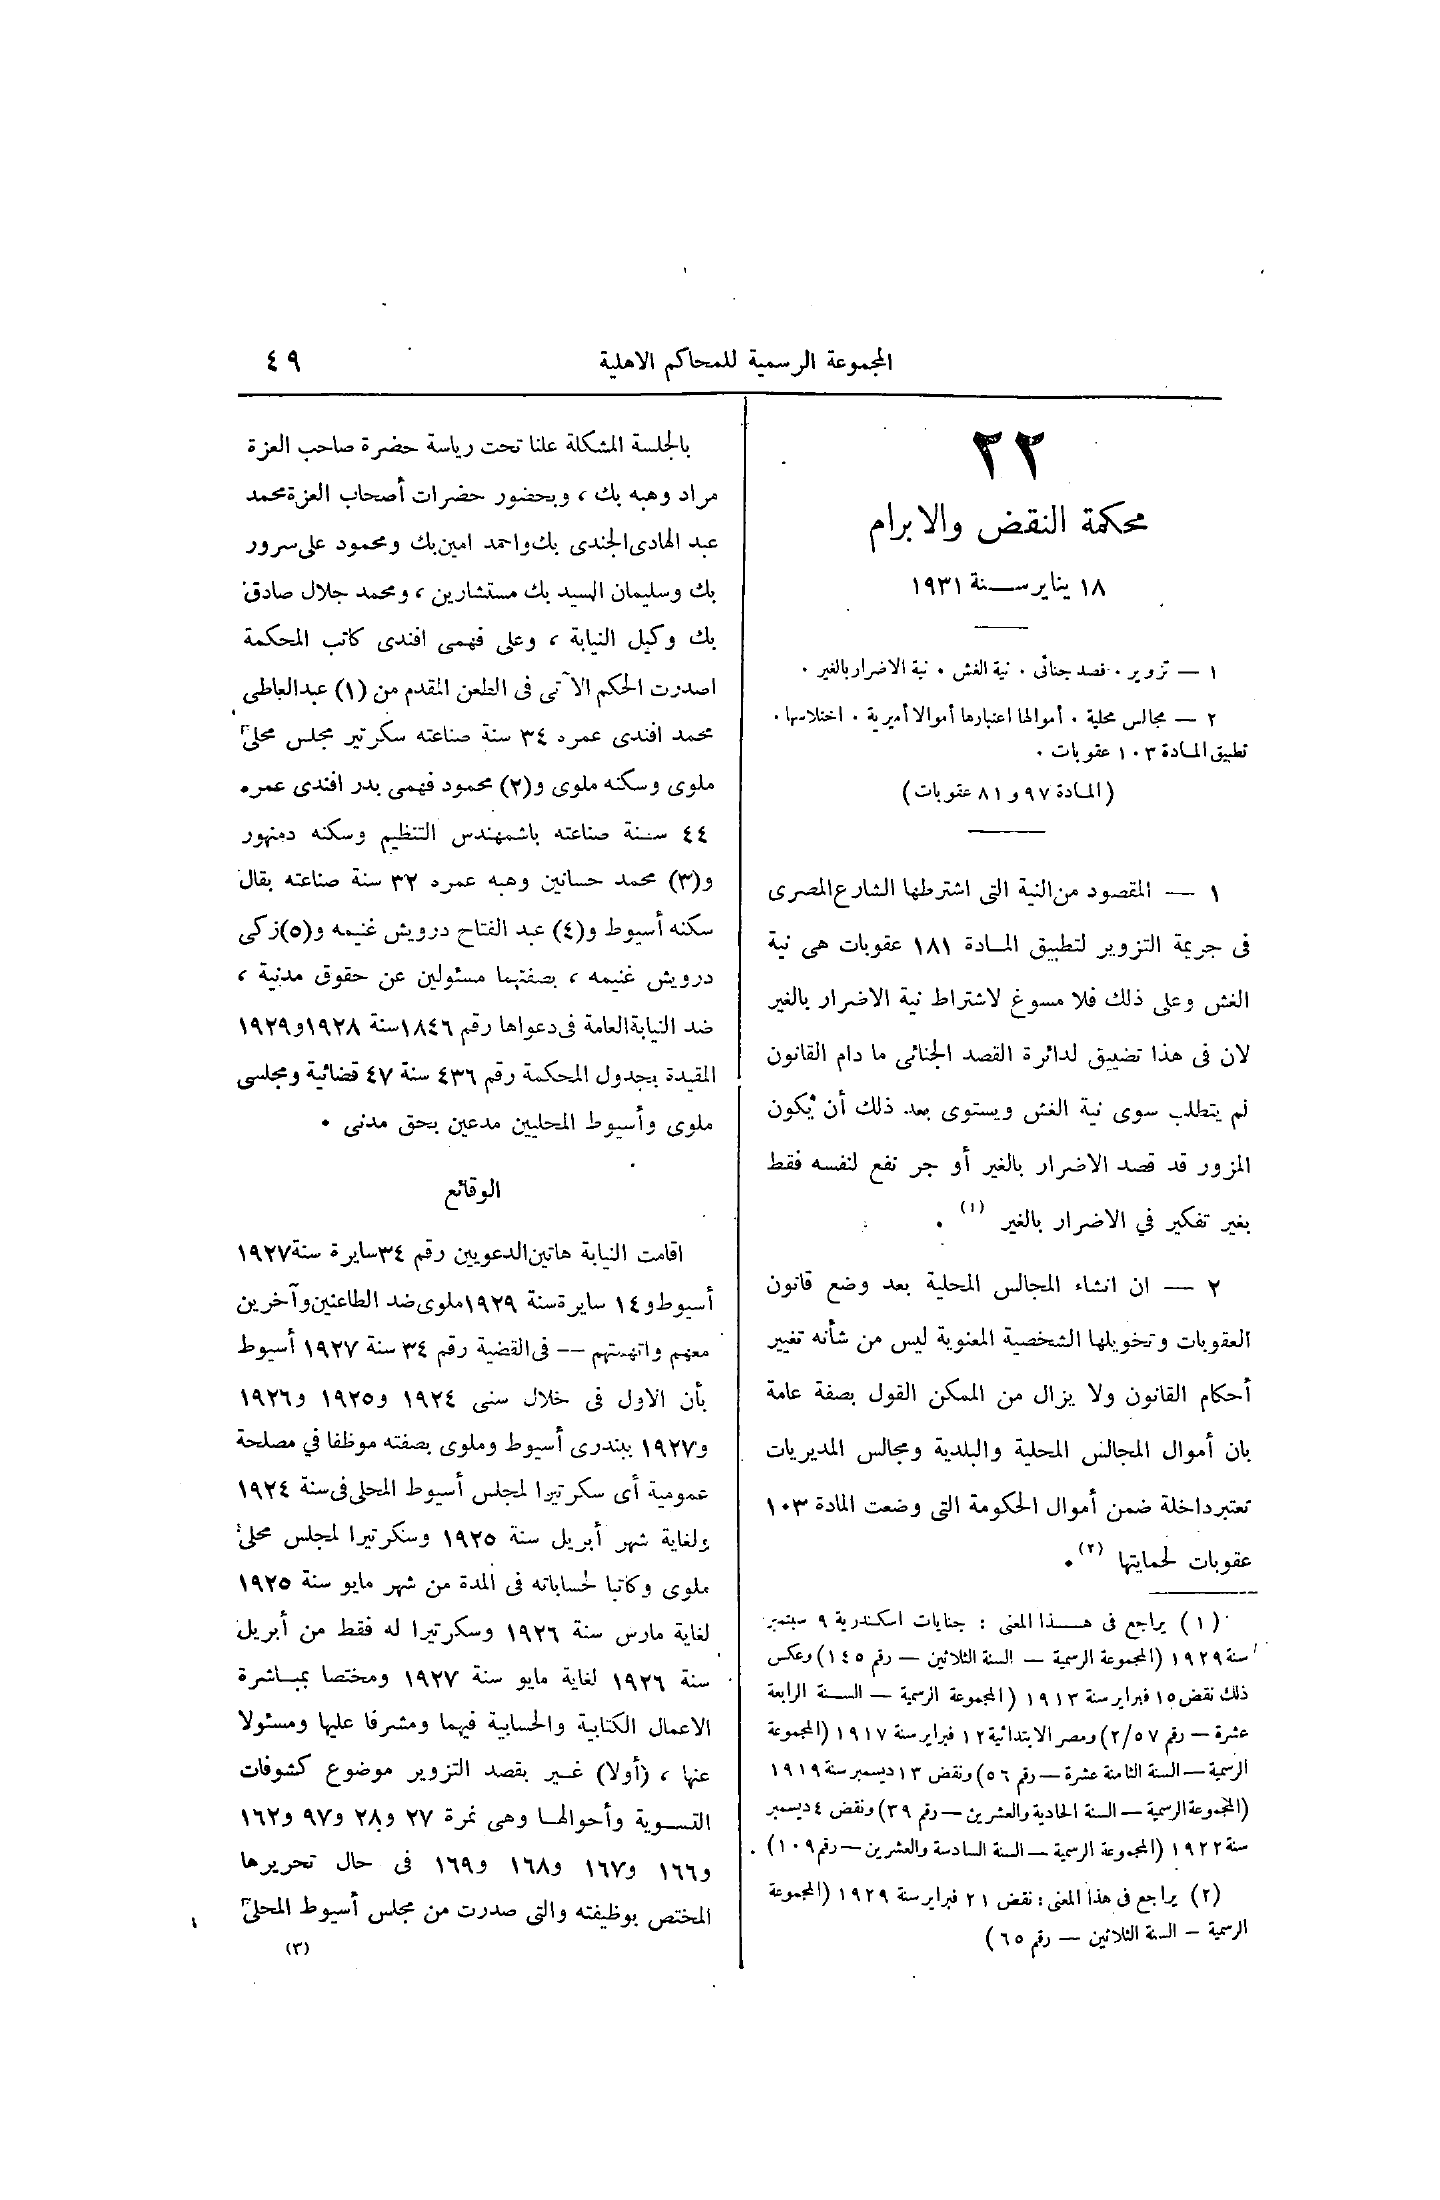 المجموعة الرسمية للمحاكم الاهلية
٤٩
٢٢
محكمة النقض والابرام
١٨ يناير سنة ١٩٣١
١ — تزوير ٠ قصد جنائى ٠ نية الغش ٠ نية الاضرار بالغير ٠
٢ — مجالس محلية ٠ أموالها اعتبارها أموالا أميرية ٠ اختلاسها ٠
تطبيق المادة ١٠٣ عقوبات ٠
(المادة ٩٧ و ٨١ عقوبات)
١ — المقصود من النية التى اشترطها الشارع المصرى
فى جريمة التزوير لتطبيق المادة ١٨١ عقوبات هى نية
الغش وعلى ذلك فلا مسوغ لاشتراط نية الاضرار بالغير
لان فى هذا تضييق لدائرة القصد الجنائى ما دام القانون
لم يتطلب سوى نية الغش ويستوى بعد ذلك أن يكون
المزور قد قصد الاضرار بالغير أو جر نفع لنفسه فقط
بغير تفكير في الاضرار بالغير (١) ٠
٢ — ان انشاء المجالس المحلية بعد وضع قانون
العقوبات وتخويلها الشخصية المعنوية ليس من شأنه تغيير
أحكام القانون ولا يزال من الممكن القول بصفة عامة
بان أموال المجالس المحلية والبلدية ومجالس المديريات
تعتبر داخلة ضمن أموال الحكومة التى وضعت المادة ١٠٣
عقوبات لحمايتها (٢) ٠
(١) يراجع فى هذا المعنى : جنايات اسكندرية ٩ سبتمبر
سنة ١٩٢٩ (المجموعة الرسمية — السنة الثلاثين — رقم ١٤٥) وعكس
ذلك نقض ١٥ فبراير سنة ١٩١٣ (المجموعة الرسمية — السنة الرابعة
عشرة — رقم ٢/٥٧) ومصر الابتدائية ١٢ فبراير سنة ١٩١٧ (المجموعة
الرسمية — السنة الثامنة عشرة — رقم ٥٦) ونقض ١٣ ديسمبر سنة ١٩١٩
(المجموعة الرسمية — السنة الحادية والعشرين — رقم ٣٩) ونقض ٤ ديسمبر
سنة ١٩٢٢ (المجموعة الرسمية — السنة السادسة والعشرين — رقم ١٠٩) ٠
(٢) يراجع فى هذا المعنى : نقض ٢١ فبراير سنة ١٩٢٩ (المجموعة
الرسمية — السنة الثلاثين — رقم ٦٥)
بالجلسة المشكلة علنا تحت رياسة حضرة صاحب العزة
مراد وهبه بك ، وبحضور حضرات أصحاب العزة محمد
عبد الهادى الجندى بك واحمد امين بك ومحمود على سرور
بك وسليمان السيد بك مستشارين ، ومحمد جلال صادق
بك وكيل النيابة ، وعلى فهمى افندى كاتب المحكمة
اصدرت الحكم الآتى فى الطعن المقدم من (١) عبد العاطى
محمد افندى عمره ٣٤ سنة صناعته سكرتير مجلس محلى
ملوى وسكنه ملوى و(٢) محمود فهمى بدر افندى عمره
٤٤ سنة صناعته باشمهندس التنظيم وسكنه دمنهور
و(٣) محمد حسانين وهبه عمره ٣٢ سنة صناعته بقال
سكنه أسيوط و(٤) عبد الفتاح درويش غنيمه و(٥) زكى
درويش غنيمه ، بصفتهما مسئولين عن حقوق مدنية ،
ضد النيابة العامة فى دعواها رقم ١٨٤٦ سنة ١٩٢٨ و١٩٢٩
المقيدة بجدول المحكمة رقم ٤٣٦ سنة ٤٧ قضائية ومجلسى
ملوى وأسيوط المحليين مدعين بحق مدنى ٠
الوقائع
اقامت النيابة هاتين الدعويين رقم ٣٤ سايرة سنة ١٩٢٧
أسيوط و١٤ سايرة سنة ١٩٢٩ ملوى ضد الطاعنين وآخرين
معهم واتهمتهم -- فى القضية رقم ٣٤ سنة ١٩٢٧ أسيوط
بأن الاول فى خلال سنى ١٩٢٤ و١٩٢٥ و١٩٢٦
و١٩٢٧ ببندرى أسيوط وملوى بصفته موظفا في مصلحة
عمومية أى سكرتيرا لمجلس أسيوط المحلى فى سنة ١٩٢٤
ولغاية شهر أبريل سنة ١٩٢٥ وسكرتيرا لمجلس محلى
ملوى وكاتبا لحساباته فى المدة من شهر مايو سنة ١٩٢٥
لغاية مارس سنة ١٩٢٦ وسكرتيرا له فقط من أبريل
سنة ١٩٢٦ لغاية مايو سنة ١٩٢٧ ومختصا بمباشرة
الاعمال الكتابية والحسابية فيهما ومشرفا عليها ومسئولا
عنها ، (أولا) غير بقصد التزوير موضوع كشوفات
التسوية وأحوالها وهى نمرة ٢٧ و٢٨ و٩٧ و١٦٢
و١٦٦ و١٦٧ و١٦٨ و١٦٩ فى حال تحريرها
المختص بوظيفته والتى صدرت من مجلس أسيوط المحلى
(٣)